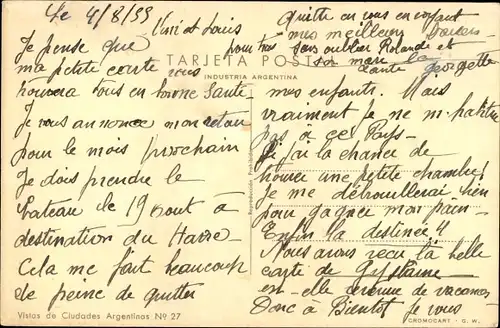 Le 4/8/59
et Louis
Je pense que
ma petite carte vous
trouvera tous en bonne Santé
Je vous annonce mon retour
pour le mois prochain
Je dois prendre le
bateau le 19 out à
destination du Havre
Cela me fait beaucoup
de peine de quitter
TARJETA POSTAL
INDUSTRIA ARGENTINA
mes enfants. Mais
vraiment je ne m'habitue
pas à ce Pays-
Si j'ai la chance de
trouver une petite chambre
Je me débrouillerai bien
pour gagner mon pain-
Enfin la destinée !!
Nous avons reçu la belle
carte de
est-elle revenue de vacances
Donc à Bientôt Je vous
quitte en vous en
mes meilleurs
pour tous Sans oublier Rolande et
son mari la
tante Georgette
Vistas de Ciudades Argentinas Nº 27
CROMOCART - G. W.